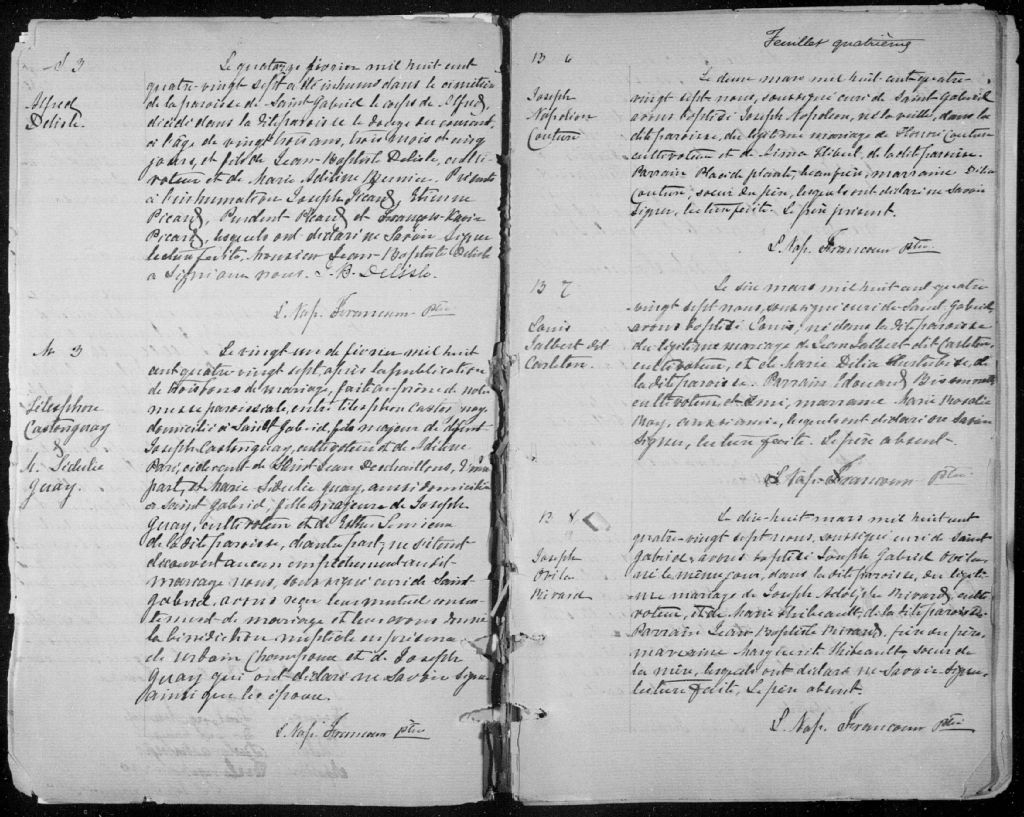 S 3
Alfred
Delisle.
Le quatorze février mil huit cent
quatre-vingt sept a été inhumé dans le cimetière
de la paroisse de Saint Gabriel le corps de Alfred,
décédé dans la dite paroisse le douze du courant,
à l'âge de vingt trois ans, trois mois et cinq
jours, et fils de Jean-Baptiste Delisle, culti-
vateur et de Marie Adeline Mercier. Présents
à l'inhumation Joseph Picard, Etienne
Picard, Prudent Picard et François-Xavier
Picard, lesquels ont déclaré ne savoir signer
lecture faite, monsieur Jean-Baptiste Delisle
a signé avec nous. J. B. Delisle
L. Nap. Francoeur Ptre
M 3
Télesphore
Castonguay
&
M. Sédulie
Guay.
Le vingt un de février mil huit
cent quatre vingt sept, après la publication
de trois bans de mariage, faite au prône de notre
messe paroissiale, entre Télesphore Castonguay
domicilié à Saint Gabriel, fils majeur de défunt
Joseph Castonguay, cultivateur et de Adeline
Paré, ci devant de Saint Jean Deschaillons, d'une
part, et Marie Sédulie Guay, aussi domiciliée
à Saint Gabriel, fille majeure de Joseph
Guay, cultivateur et de Esther Lemieux
de la dite paroisse, d'autre part, ne s'étant
découvert aucun empêchement au dit
mariage nous, soussigné curé de Saint
Gabriel, avons reçu leur mutuel consen-
tement de mariage et leur avons donné
la bénédiction nuptiale en présence
de Urbain Champoux et de Joseph
Guay qui ont déclaré ne savoir signer
ainsi que les époux.
L. Nap. Francoeur Ptre
Feuillet quatrième
B 6
Joseph
Napoléon
Couture
Le deux mars mil huit cent quatre-
vingt sept nous, soussigné curé de Saint Gabriel
avons baptisé Joseph Napoléon, né la veille, dans la
dite paroisse, du légitime mariage de Couture
cultivateur et de Thibeault, de la dite paroisse.
Parrain Placide beau frère, marraine Délia
Couture, soeur du père, lesquels ont déclaré ne savoir
signer, lecture faite. Le père présent.
L. Nap. Francoeur Ptre
B 7
Louis
Jalbert dit
Carleton.
Le dix mars mil huit cent quatre
vingt sept nous, soussigné curé de Saint Gabriel,
avons baptisé Louis, né dans la dite paroisse
du légitime mariage de Jean Jalbert dit Carleton,
cultivateur, et de Marie Délia Hurtubise, de
la dite paroisse. Parrain Edouard Bissonnette
cultivateur et ami, marraine Marie Rosalie
Roy, aussi amie, lesquels ont déclaré ne savoir
signer, lecture faite. Le père absent.
L. Nap. Francoeur Ptre
B 8
Joseph
Ovila
Rivard
Le dix-huit mars mil huit cent
quatre-vingt sept nous, soussigné curé de Saint
Gabriel, avons baptisé Joseph Gabriel Ovila
né le même jour, dans la dite paroisse, du légiti-
me mariage de Joseph Adolphe Rivard, culti-
vateur, et de Marie Thibeault, de la dite paroisse.
Parrain Jean-Baptiste Rivard, frère du père,
marraine Marguerite Thibeault, soeur de
la mère, lesquels ont déclaré ne savoir signer,
lecture faite. Le père absent.
L. Nap. Francoeur Ptre